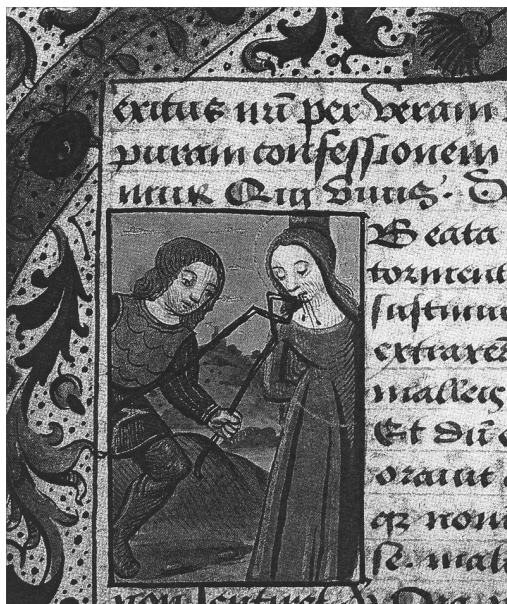 exitus nrī per veram
puram confessionem
mur Qui vivis.
Beata
torment
sustinu
extraxer
malleis
Et dū
oravit
qz nom
se. mal
non